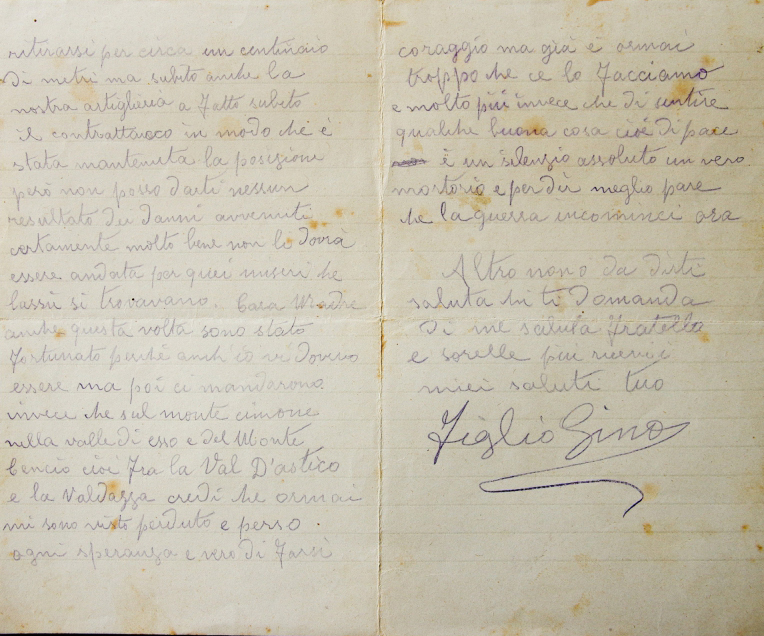 ritirarsi per circa un centinaio
di metri ma subito anche la
nostra artiglieria a fatto subito
il contrattacco in modo che è
stata mantenuta la posizione
però non posso darti nessun
resultato dei danni avvenuti
certamente molto bene non li dovrà
essere andata per quei miseri che
lassù si trovavano. Cara Madre
anche questa volta sono stato
fortunato perchè anch'io vi dovevo
essere ma poi ci mandarono
invece che sul monte cimone
nella valle di esso e del Monte
Cencio cioè fra la Val D'astico
e la Valdazza credi che ormai
mi sono visto perduto e perso
ogni speranza e vero di farsi
coraggio ma già è ormai
troppo che ce lo facciamo
e molto più invece che di sentire
qualche buona cosa cioè di pace
è un silenzio assoluto un vero
mortorio e per dir meglio pare
che la guerra incominci ora
Altro non ò da dirti
saluta chi ti domanda
di me saluta fratello
e sorelle più ricevi
miei saluti tuo
Figlio Gino